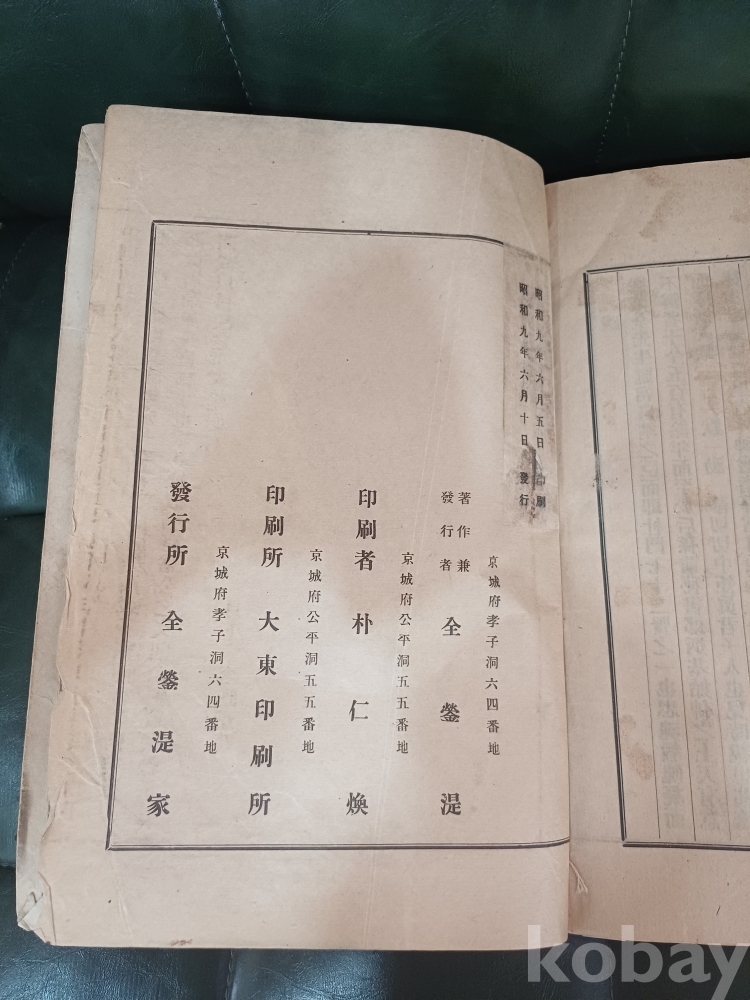 昭和九年六月五日 印刷
昭和九年六月十日 發行
京城府孝子洞六四番地
著作兼
發行者 全鎣湜
京城府公平洞五五番地
印刷者 朴仁煥
京城府公平洞五五番地
印刷所 大東印刷所
京城府孝子洞六四番地
發行所 全鎣湜家
kobay